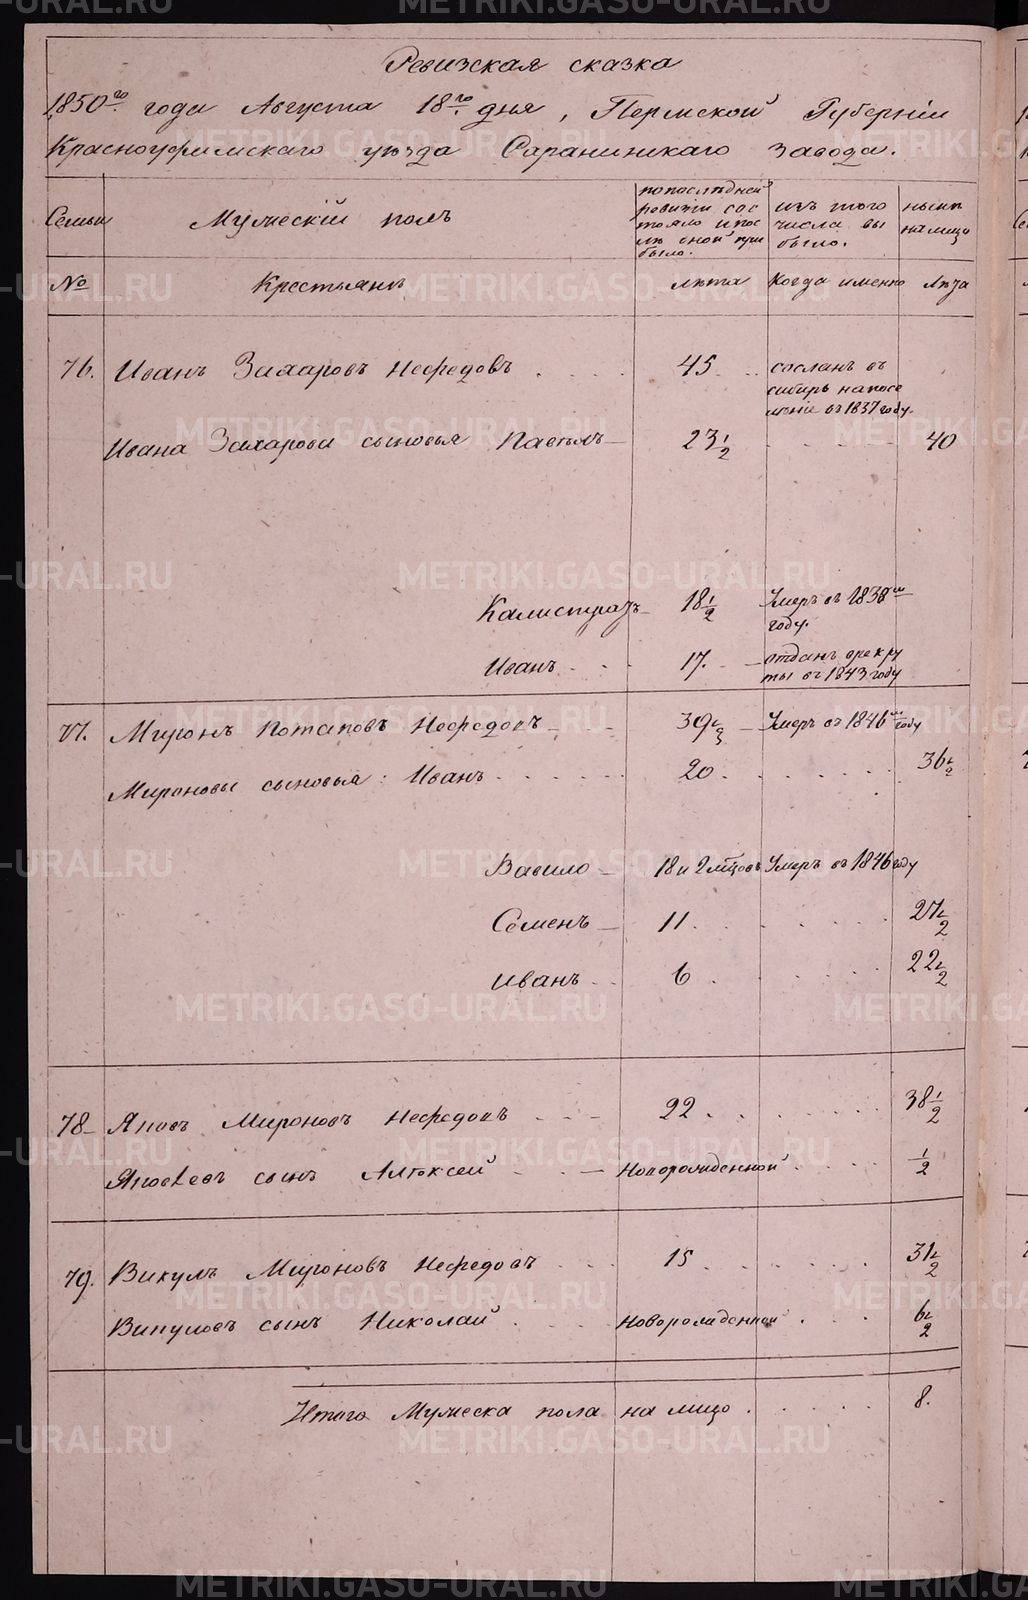 Ревизская сказка
1850го года Августа 18го дня, Пермской Губернiи
Красноуфимскаго уѣзда Саранинскаго завода.
Семьи
Мужескiй полъ
по последней ревизiи состояло и после оной прибыло.
изъ того числа выбыло.
ныне на лицо
№
Крестьянъ
лѣта
Когда именно
Лѣта
76. Иванъ Захаровъ Нефедовъ . . . 45 . . сосланъ въ сибирь на поселенiе въ 1837 году.
Ивана Захарова сыновья Павелъ — 23 1/2 . . . . 40
Калистратъ — 18 1/2 Умеръ въ 1838м году.
Иванъ . . . 17. — отданъ в рекруты въ 1843 году
77. Миронъ Потаповъ Нефедовъ — 39 1/2 — Умеръ въ 1846м году
Мироновы сыновья: Иванъ . . . . . . 20 . . . . . . . 36 1/2
Вавило — 18 и 2 мцовъ Умеръ въ 1846 году
Семенъ — 11 . . . . . . 27 1/2
Иванъ . . 6 . . . . . . 22 1/2
78 — Яковъ Мироновъ Нефедовъ . . — 22 . . . . . . . 38 1/2
Яковлевъ сынъ Алексей . . — Новорожденной . . . . 1/2
79. Викулъ Мироновъ Нефедовъ . . . 15 . . . . . . . 31 1/2
Викуловъ сынъ Николай . . . . Новорожденной . . . 6 1/2
Итого Мужеска пола на лицо . . . . . . 8.
METRIKI.GASO-URAL.RU